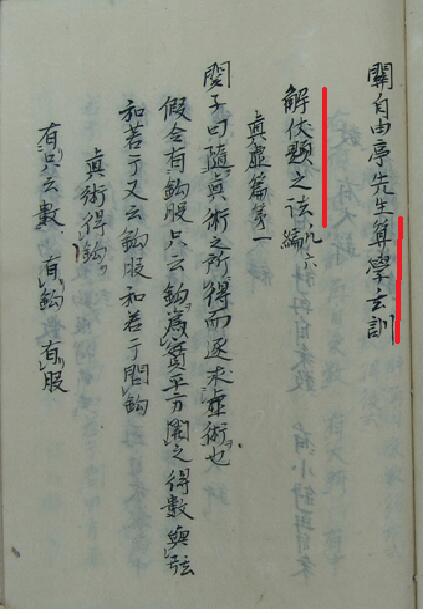 關自由亭先生算學玄訓
解伏題之法 凡六編
真虚篇第一
關子曰隨真術之所得而逐求虚術也
假令有鈎股只云鈎為實平方開之得數與弦
和若干又云鈎股和若干問鈎
真術得鈎
有只云數 有鈎 有股